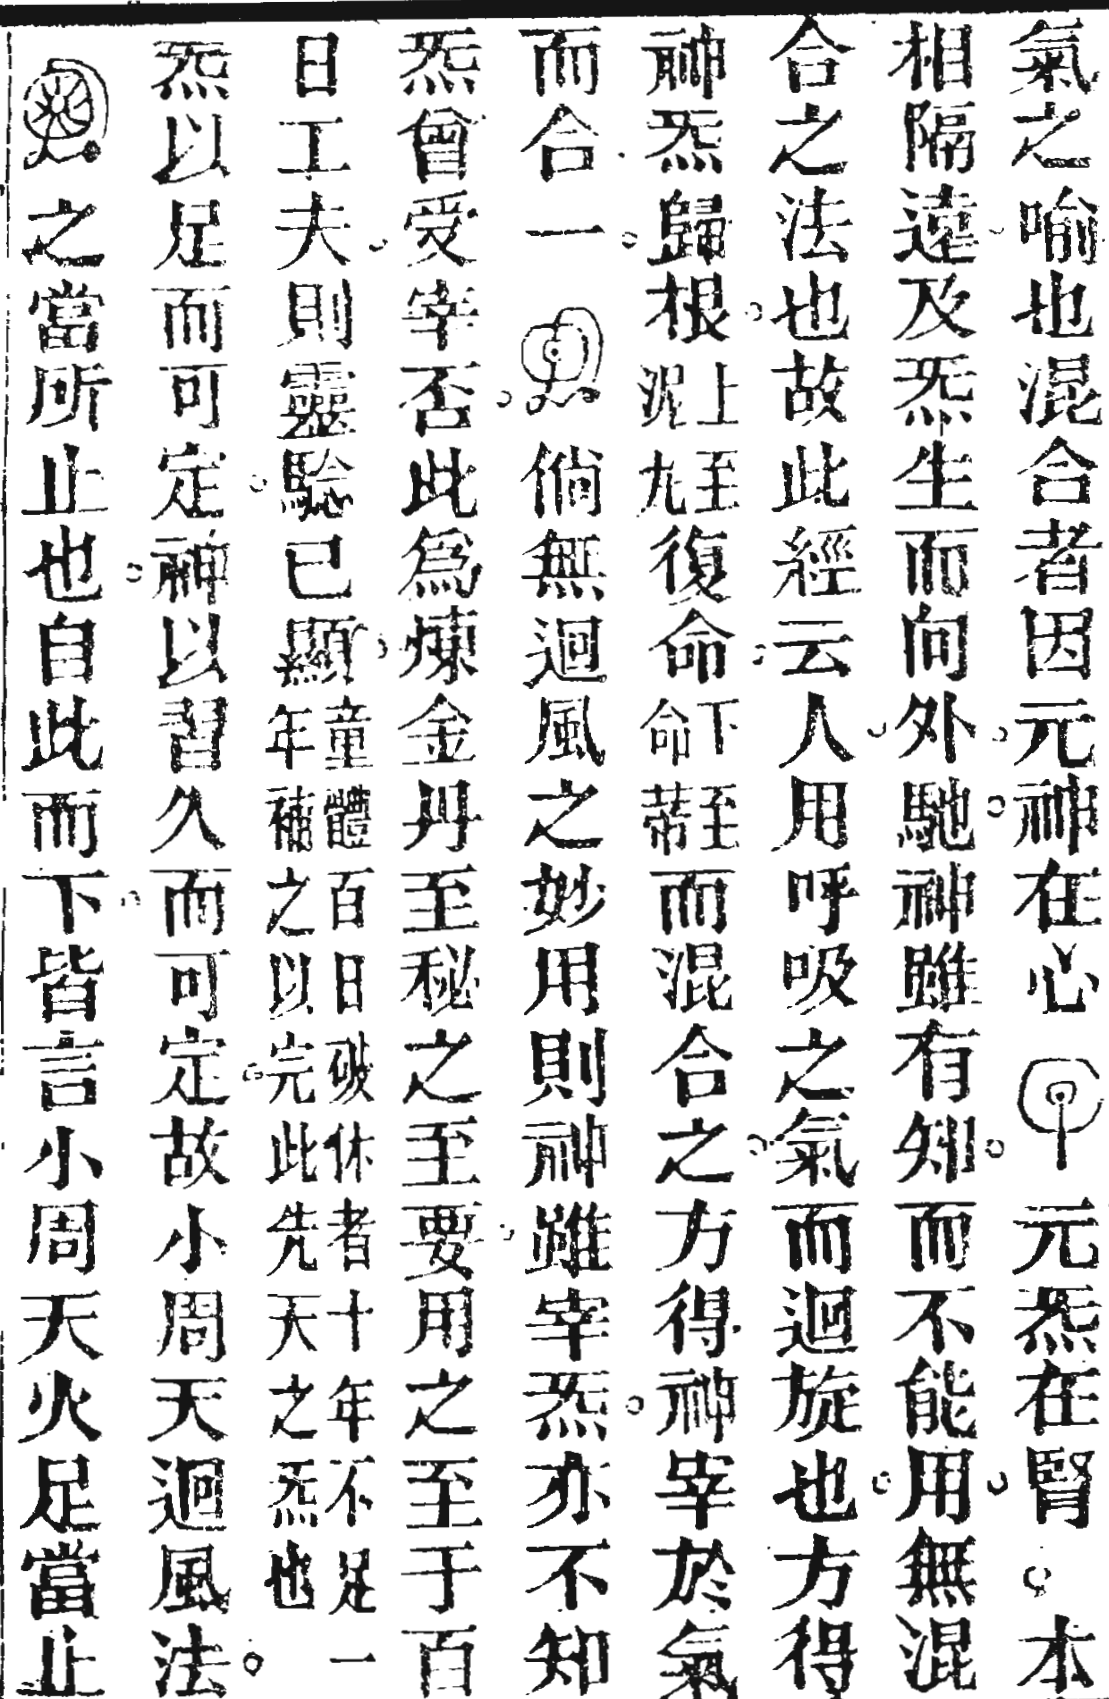 氣之喻也混合者因元神在心元炁在腎。本
相隔遠及炁生而向外馳神雖有知而不能用無混
合之法也故此經云人用呼吸之氣而迴旋也方得
神炁歸根上至泥九復命下至命蒂而混合之方得神宰於氣
而合一倘無迴風之妙用則神雖宰炁亦不知
炁曾受宰否此爲煉金丹至秘之至要用之至于百
日工夫則靈驗已顯童體百日破休者十年不足一年補之以完此先天之炁也
炁以足而可定神以習久而可定故小周天迴風法
之當所止也自此而下皆言小周天火足當止